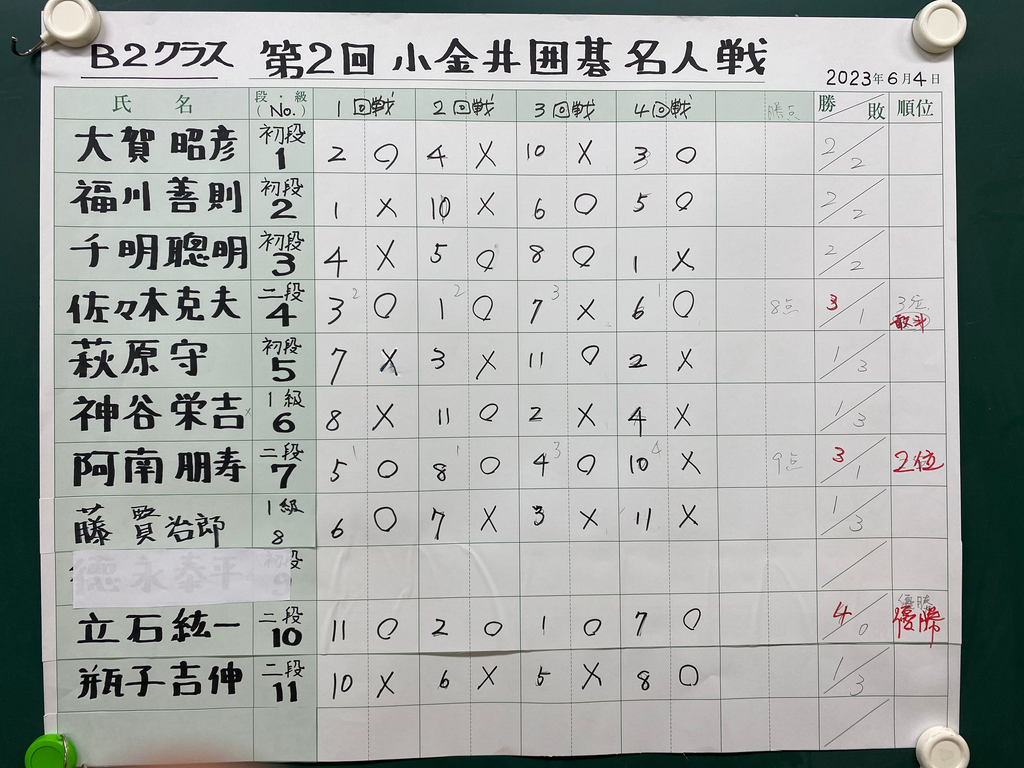 B2クラス 第2回 小金井囲碁名人戦
2023年6月4日
氏 名 段・級 (No.) 1回戦 2回戦 3回戦 4回戦 勝点 勝/敗 順位
大賀 昭彦 初段 1 2 ○ 4 × 10 × 3 ○ 2/2
福川 善則 初段 2 1 × 10 × 6 ○ 5 ○ 2/2
千明 聰明 初段 3 4 × 5 ○ 8 ○ 1 × 2/2
佐々木克夫 二段 4 3 2 ○ 1 2 ○ 7 3 × 6 1 ○ 8点 3/1 3位 敢斗
萩原 守 初段 5 7 × 3 × 11 ○ 2 × 1/3
神谷 栄吉 1級 6 8 × 11 ○ 2 × 4 × 1/3
阿南 朋寿 二段 7 5 1 ○ 8 1 ○ 4 3 ○ 10 4 × 9点 3/1 2位
藤 賢治郎 1級 8 6 ○ 7 × 3 × 11 × 1/3
徳永泰平 初段 9
立石 紘一 二段 10 11 ○ 2 ○ 1 ○ 7 ○ 4/0 優勝 優勝
瓶子 吉伸 二段 11 10 × 6 × 5 × 8 ○ 1/3